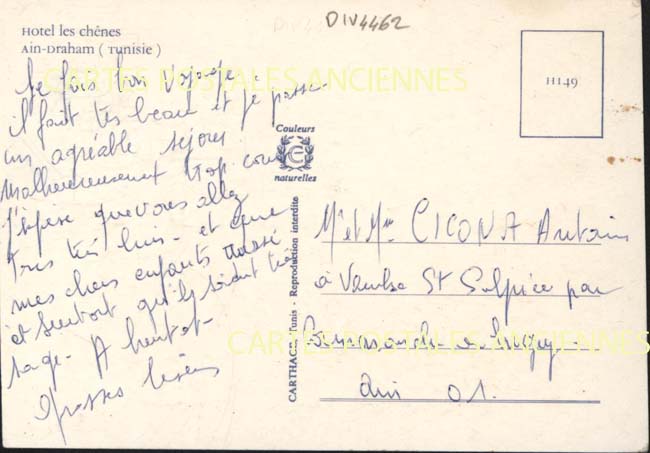 Hotel les chênes
Ain-Draham ( Tunisie )
DIV4462
CARTES POSTALES ANCIENNES
bon voyage
il fait très beau et je passe
un agréable séjour
malheureusement trop court
j'espère que vous allez
Tous très bien - et que
mes chers enfants aussi
et surtout qu'ils soient très
sage - A bientot -
grosses bises
H149
Couleurs
naturelles
CARTHACARTE - Tunis - Reproduction interdite
Mr et Mme CICONA Antoine
à St Sulpice par
CARTES POSTALES ANCIENNES
Ain 01.